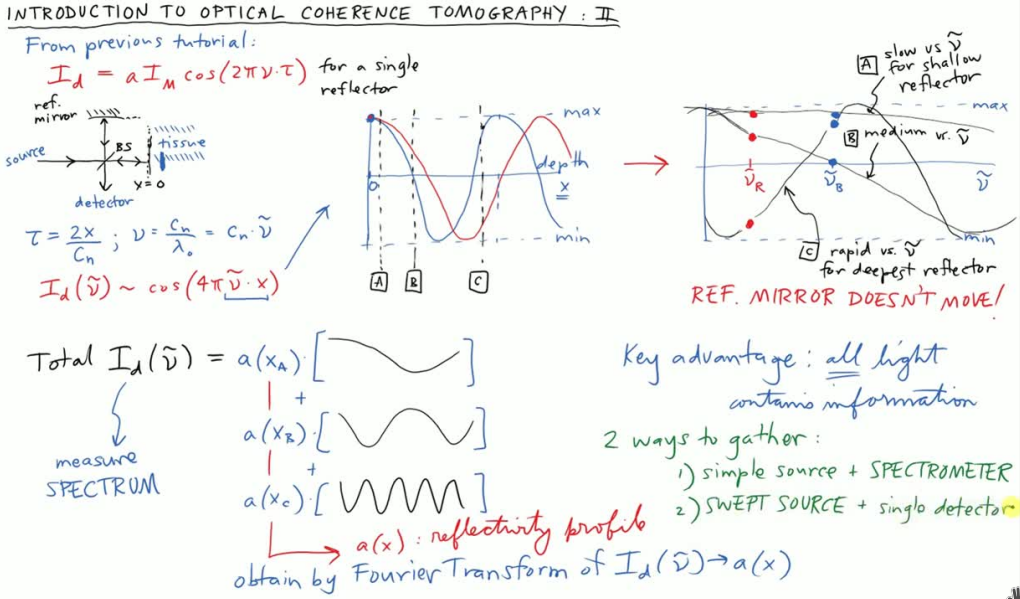 INTRODUCTION TO OPTICAL COHERENCE TOMOGRAPHY : II
From previous tutorial:
I_d = a I_M cos(2πν·τ) for a single reflector
ref. mirror
BS
tissue
source
x=0
detector
τ = 2x/c_n ; ν = c_n/λ_0 = c_n·ν̃
I_d(ν̃) ~ cos(4πν̃·x)
max
depth
x
0
min
A
B
C
A slow vs ν̃
for shallow
reflector
max
B medium vs. ν̃
ν̃_R
ν̃_B
ν̃
min
C rapid vs. ν̃
for deepest reflector
REF. MIRROR DOESN'T MOVE!
Total I_d(ν̃) = a(x_A)·[ ]
+
a(x_B)·[ ]
+
a(x_C)·[ ]
measure
SPECTRUM
a(x) : reflectivity profile
obtain by Fourier Transform of I_d(ν̃)→a(x)
Key advantage : all light
contains information
2 ways to gather :
1) simple source + SPECTROMETER
2) SWEPT SOURCE + single detector